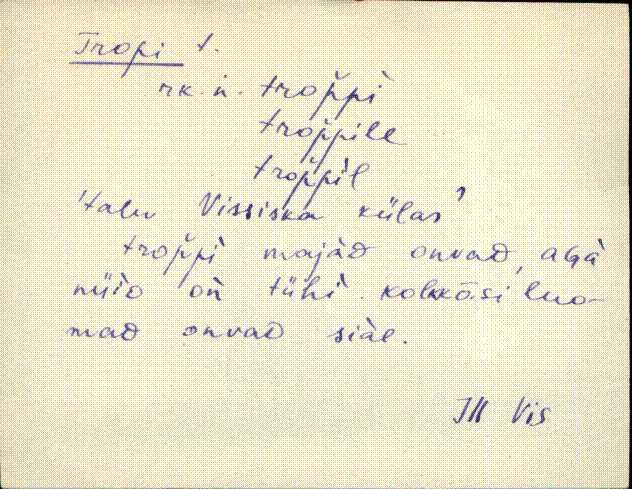 Tropi t.
rk. n. trop̆pì
trop̆pile
trop̆pìl
'talu Vissiska külas'
trop̆pì majàD onvaD, aGà
nüiD oǹ tühì. kolkõsi luo-
maD onvaD siàl.
Jll Vis